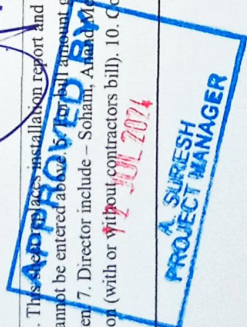 . This
installation report and
annot be entered above. 5.
bill amount
en 7. Director include – Soham, Anand Me
on (with or without contractors bill). 10.
APPROVED BY
12 JUL 2024
A. SURESH
PROJECT MANAGER